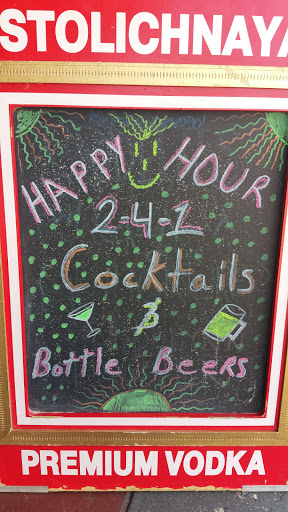 STOLICHNAYA
HAPPY HOUR
2-4-1
Cocktails
Bottle Beers
PREMIUM VODKA